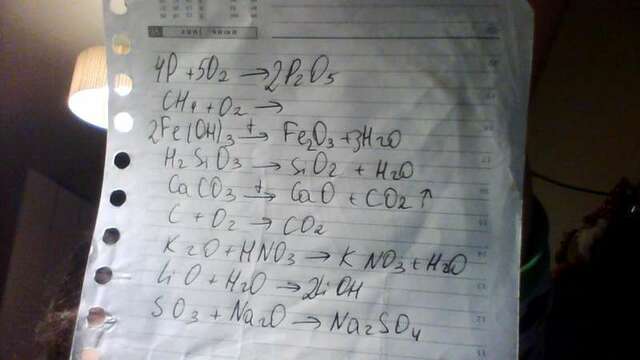 4P + 5O2 → 2P2O5
CH4 + O2 →
2Fe(OH)3 →t Fe2O3 + 3H2O
H2SiO3 → SiO2 + H2O
CaCO3 →t CaO + CO2↑
C + O2 → CO2
K2O + HNO3 → KNO3 + H2O
LiO + H2O → 2LiOH
SO3 + Na2O → Na2SO4